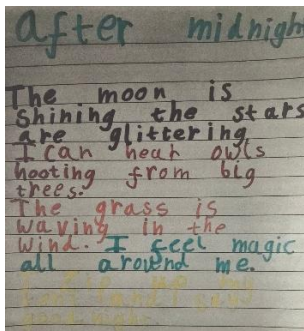 after midnigh
The moon is
shining the stars
are glittering
I can hear owls
hooting from big
trees.
The grass is
waving in the
wind. I feel magic
all around me.
good night.